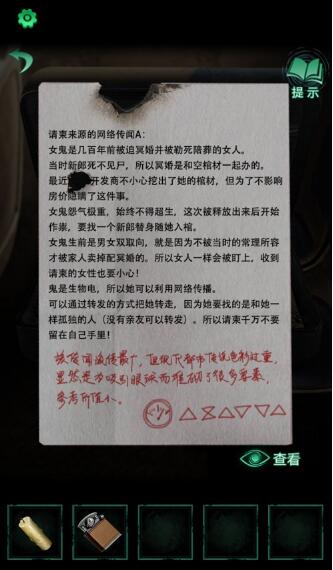 提示
请柬来源的网络传闻A:
女鬼是几百年前被迫冥婚并被勒死陪葬的女人。
当时新郎死不见尸，所以冥婚是和空棺材一起办的。
最近 开发商不小心挖出了她的棺材，但为了不影响
房价隐瞒了这件事。
女鬼怨气极重，始终不得超生，这次被释放出来后开始
作祟，要找一个新郎替身随她入棺。
女鬼生前是男女双取向，就是因为不被当时的常理所容
才被家人卖掉配冥婚的。所以女人一样会被盯上，收到
请柬的女性也要小心！
鬼是生物电，所以她可以利用网络传播。
可以通过转发的方式把她转走，因为她要找的是和她一
样孤独的人（没有亲友可以转发）。所以请柬千万不要
留在自己手里！
该传闻流传最广，但很像都市传说色彩过重，
显然是为吸引眼球而堆砌了很多要素，
参考价值小。
查看